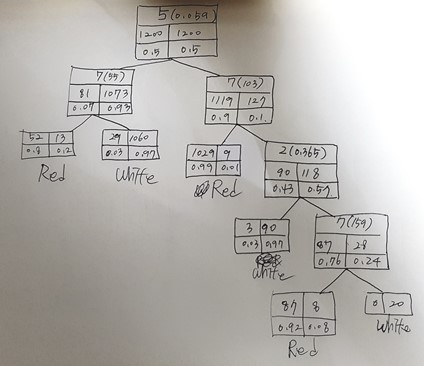 5(0.059)
1200 1200
0.5 0.5
7(55)
81 1073
0.07 0.93
7(103)
1119 127
0.9 0.1
52 13
0.8 0.2
Red
29 1060
0.03 0.97
White
1029 9
0.99 0.01
Red
2(0.365)
90 118
0.43 0.57
3 90
0.03 0.97
White
7(159)
87 28
0.76 0.24
87 8
0.92 0.08
Red
0 20
White